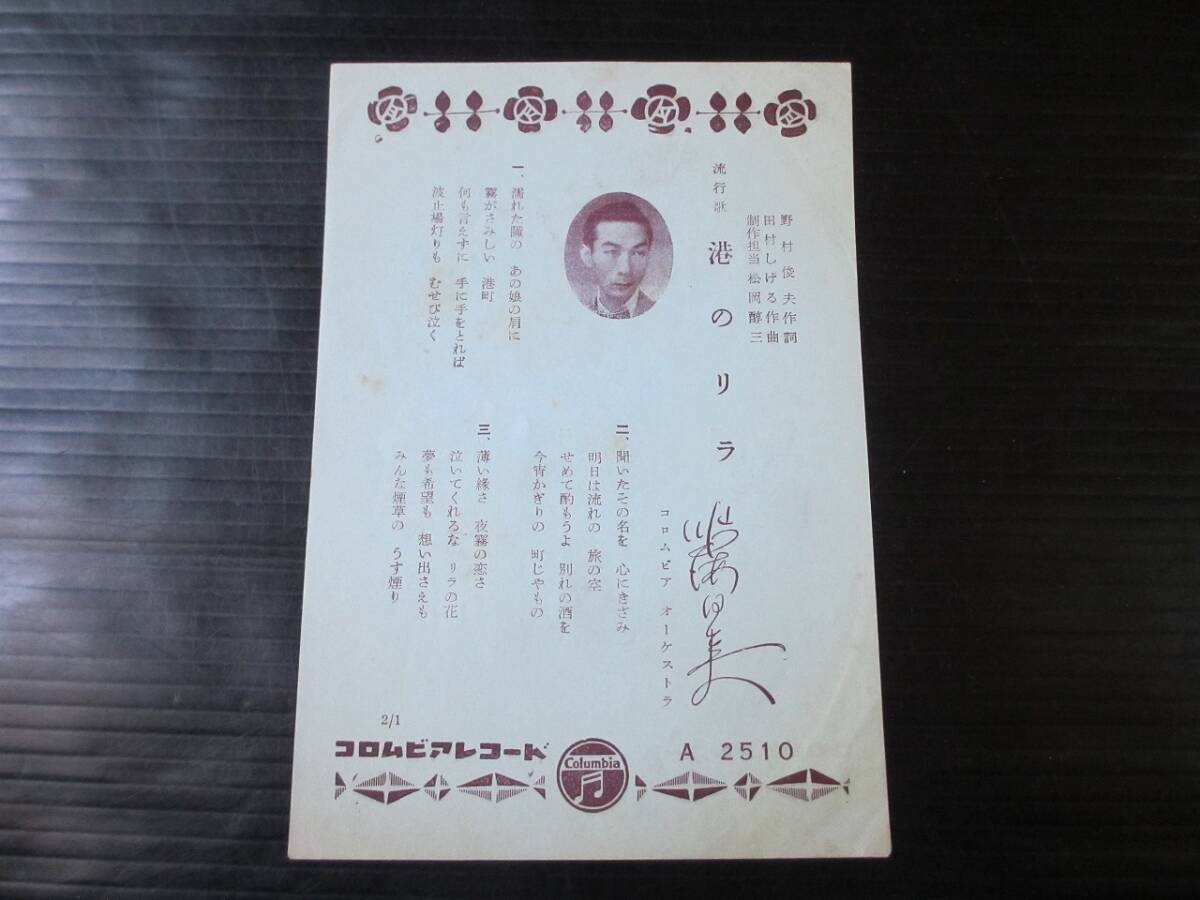 野村俊夫作詞
田村しげる作曲
制作担当 松岡醇三
流行歌 港のリラ
コロムビア オーケストラ
一、濡れた瞳の あの娘の肩に
霧がさみしい 港町
何も言えずに 手に手をとれば
波止場灯りも むせび泣く
二、聞いたその名を 心にきざみ
明日は流れの 旅の空
せめて酌もうよ 別れの酒を
今宵かぎりの 町じやもの
三、薄い縁さ 夜霧の恋さ
泣いてくれるな リラの花
夢も希望も 想い出さえも
みんな煙草の うす煙り
2/1
コロムビアレコード
Columbia
A 2510